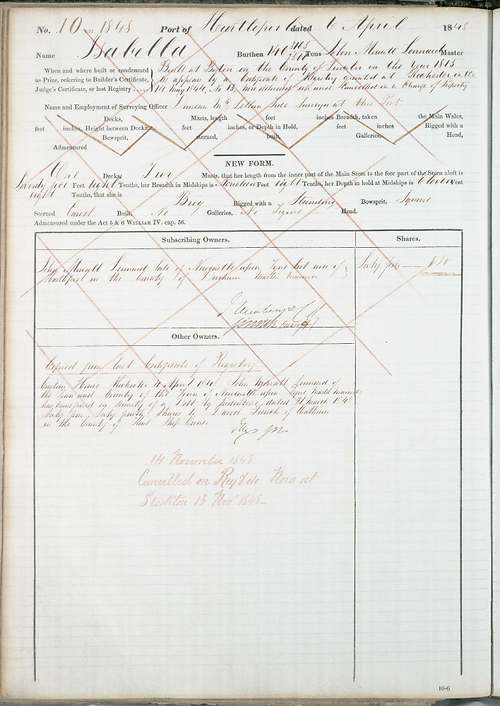 No. 10 in 1848 Port of Hartlepool dated 6 April 1848
Name Isabella Burthen 146 Tons John Master
When and where built or condemned
as Prize, referring to Builder's Certificate,
Judge's Certificate, or last Registry
Built at Boston in the County of Lincoln in the year 1815
as appears by a Certificate of Registry granted at Rochester
14 May 1844, No 13 now delivered up and Cancelled on a Change of Property
Name and Employment of Surveying Officer Duncan Mc Tide Surveyor at this Port
Decks, Masts, length feet inches Breadth, taken the Main Wales,
feet inches, Height between Decks, feet inches, or Depth in Hold, feet inches Rigged with a
Bowsprit, sterned, built, Galleries, Head,
Admeasured
NEW FORM.
One Decks, Two Masts, that her length from the inner part of the Main Stem to the fore part of the Stern aleft is
Seventy five Feet eight Tenths, her Breadth in Midships is nineteen Feet eight Tenths, her Depth in hold at Midships is eleven Feet
eight Tenths, that she is Brig Rigged with a Standing Bowsprit, Square
Sterned Carvel Built, No Galleries, No Figure Head.
Admeasured under the Act 5 & 6 WILLIAM IV. cap. 56.
Subscribing Owners. Shares.
John late of Newcastle upon Tyne but now of Sixty four
Hartlepool in the County of Durham Master Mariner
Other Owners.
Copied from last Certificate of Registry
Custom House Rochester 4 April 1848 John of
the Town and County of the Town of Newcastle upon Tyne Master Mariner
has transferred by a Bill of dated 31 March 1848
Sixty four Sixty fourth Shares by of Chatham
in the County of Kent Ship Owner
14 November 1848
Cancelled on Reg de Novo at
Stockton 13 Nov 1848
10-6